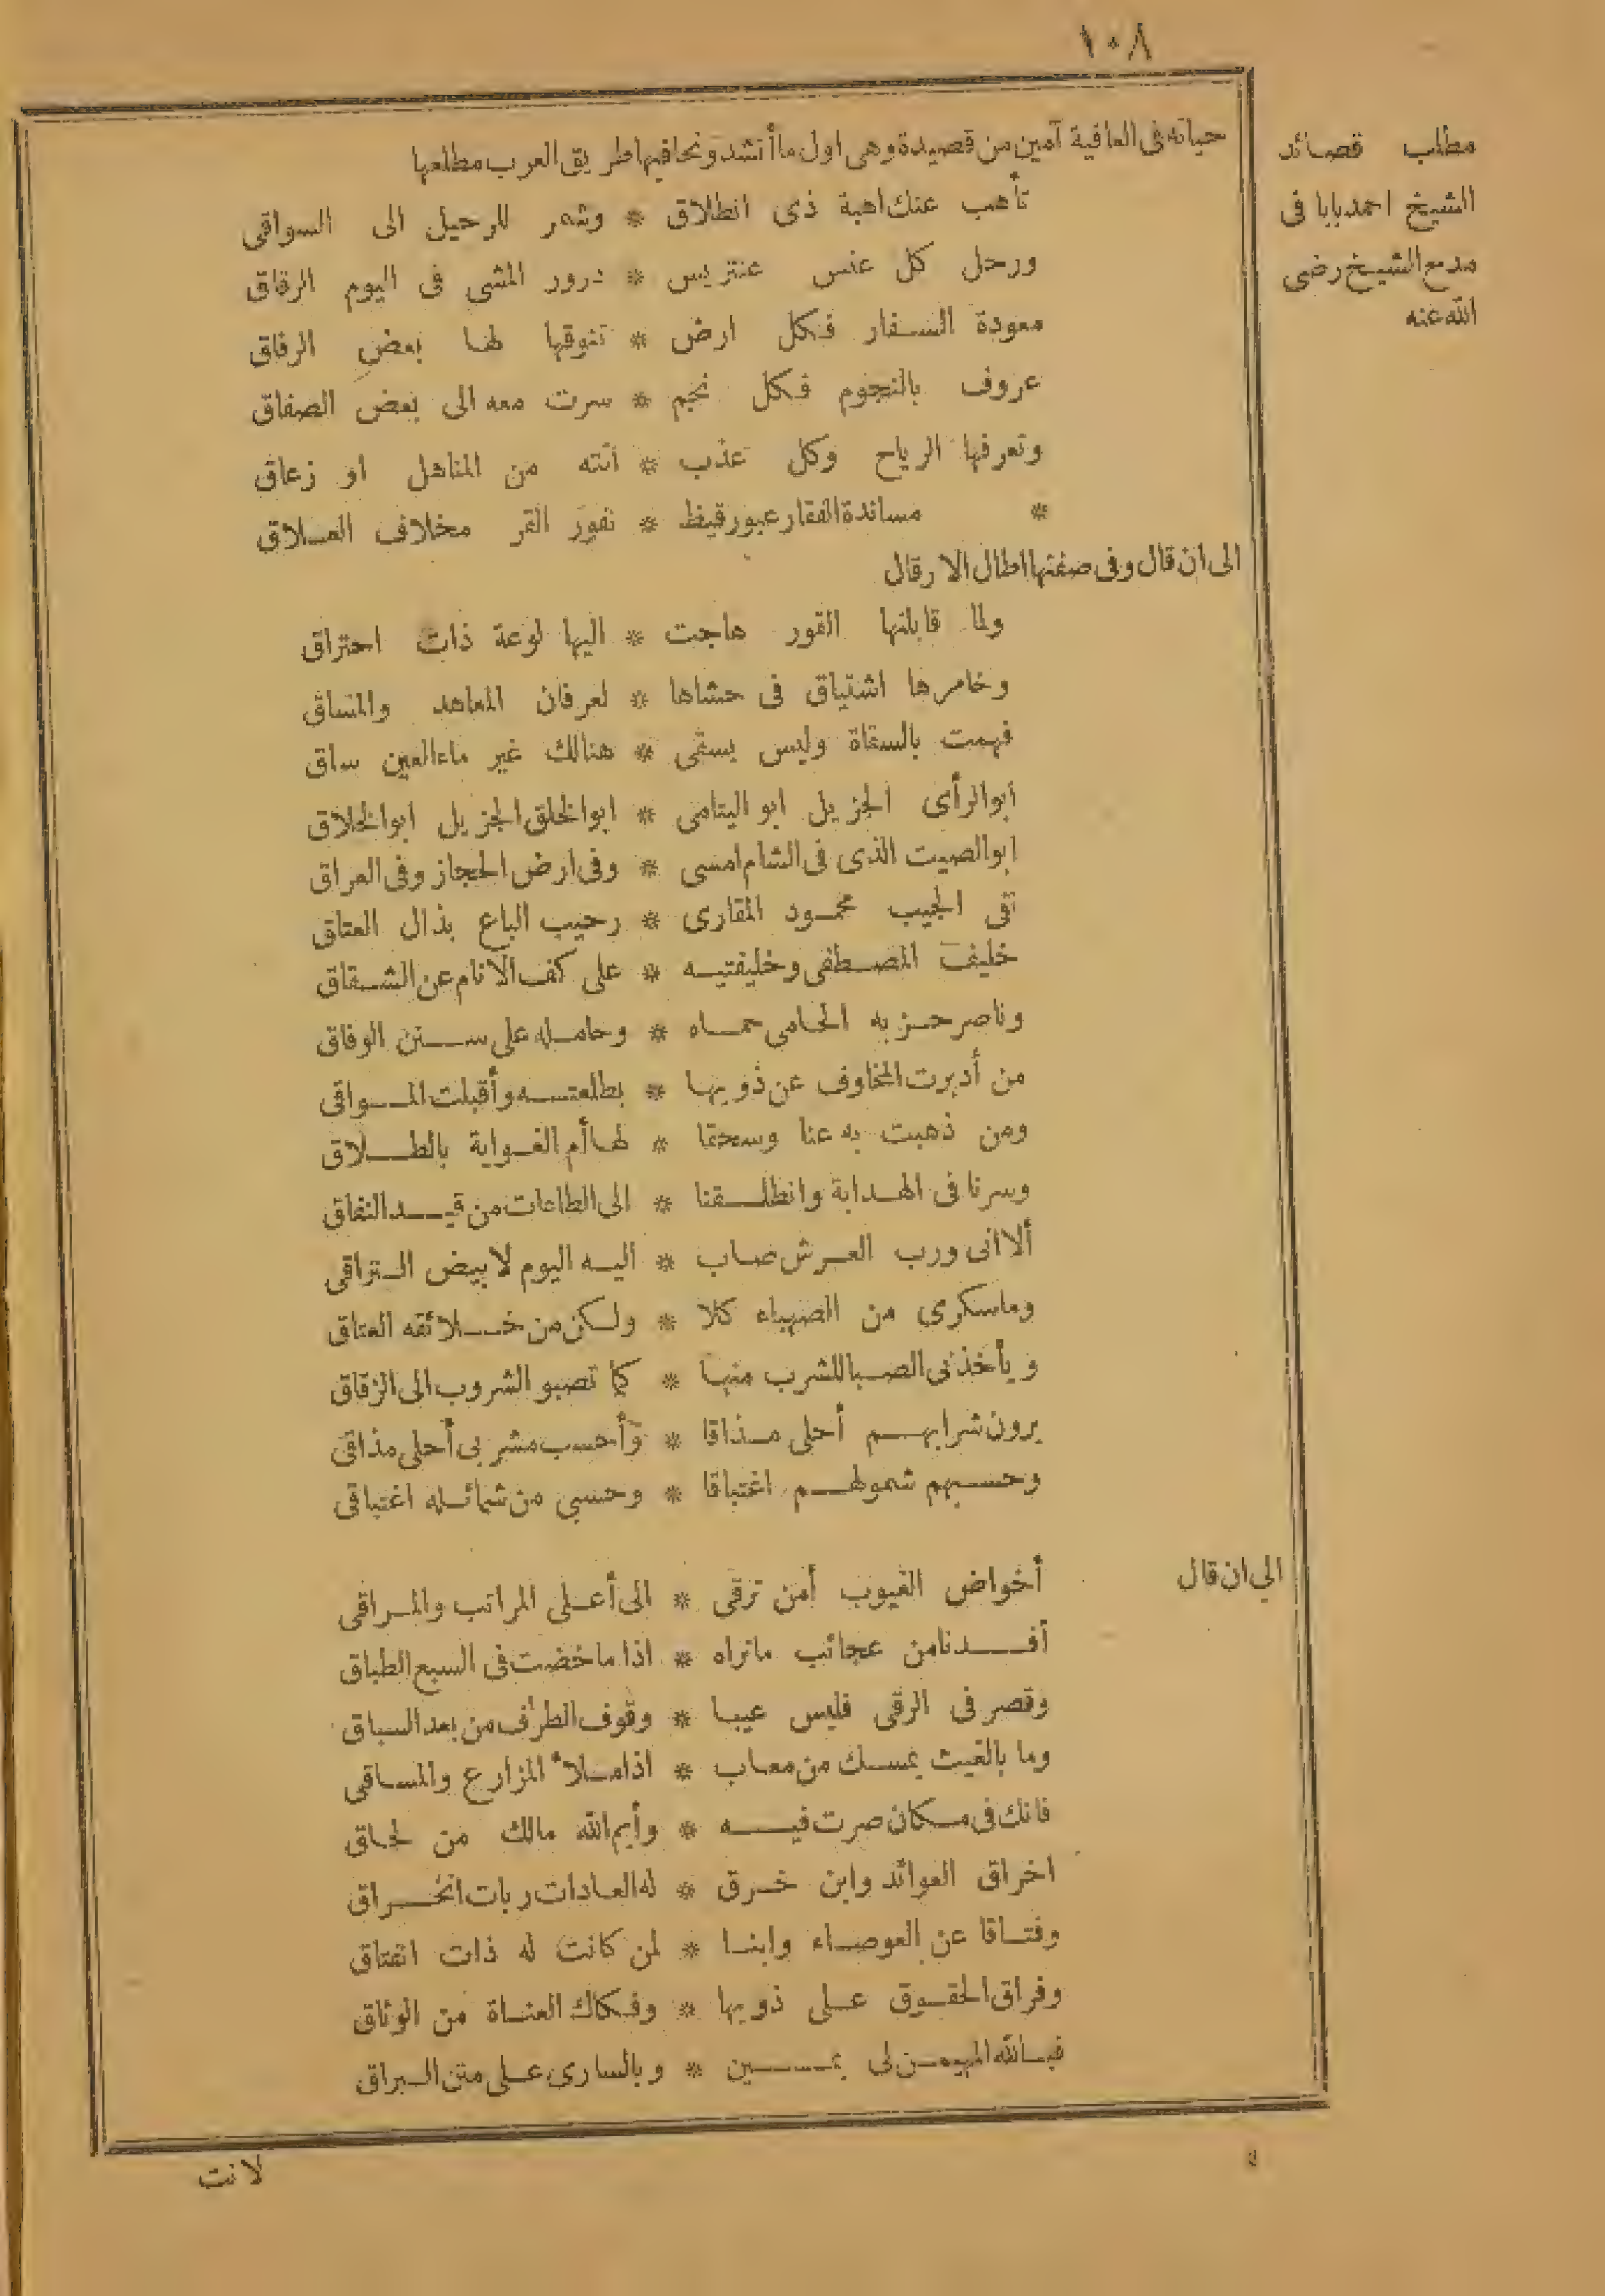 ١٠٨
مطلب قصائد
الشيخ احمد بابا فى
مدح الشيخ رضى
الله عنه
حياته فى العافية آمين من قصيدة وهى اول ما أنشد ونحا فيها طريق العرب مطلعها
تأهب عنك اهبة ذى انطلاق * وشمر للرحيل الى السواقى
ورحل كل عنس عنتريس * درور المشى فى اليوم الرقاق
معودة السفار فكل ارض * تنوقها لها بعض الرفاق
عروف بالنجوم فكل نجم * سرت معه الى بعض الصفاق
وتعرفها الرياح وكل عذب * أتته من المناهل او زعاق
* مساندة الفقار عبور قيظ * نفور القر مخلاف العلاق
الى ان قال وفى صفتها اطال الارقال
ولما قابلتها القور هاجت * اليها لوعة ذات احتراق
وخامرها اشتياق فى حشاها * لعرفان المعاهد والمساقى
فهمت بالسقاة وليس يسقى * هنالك غير ماء العين ساق
ابو الرأى الجزيل ابو اليتامى * ابو الخلق الجزيل ابو الخلاق
ابو الصيت الذى فى الشام امسى * وفى ارض الحجاز وفى العراق
نقى الجيب محمود المقارى * رحيب الباع بذال العتاق
خليف المصطفى وخليفتيه * على كف الانام عن الشقاق
وناصر حزبه الحامى حماه * وحامله على سنن الوفاق
من أدبرت المخاوف عن ذويها * بطلعته وأقبلت المواقى
ومن ذهبت به عنا وسحقا * لها أم الغواية بالطلاق
وسرنا فى الهداية وانطلقنا * الى الطاعات من قيد النفاق
ألا انى ورب العرش صاب * اليه اليوم لا بيض التراقى
وما سكرى من الصهباء كلا * ولكن من خلائقه العتاق
ويأخذنى الصبا للشرب منها * كما تصبو الشروب الى الزقاق
يرون شرابهم أحلى مذاقا * وأحسب مشربى أحلى مذاقى
وحسبهم شمولهم اغتباقا * وحسبي من شمائله اغتباقى
الي ان قال
أخواض الغيوب أمن ترقى * الى أعلى المراتب والمراقى
أفدنا من عجائب ما تراه * اذا ما خضت فى السبع الطباق
وقصر فى الرقى فليس عيبا * وقوف الطرف من بعد السباق
وما بالغيث يمسك من معاب * اذا ملأ المزارع والمساقى
فانك فى مكان صرت فيه * وأيم الله مالك من لحاق
اخراق العوائد وابن خرق * له العادات ربات انخراق
وفتاقا عن العوصاء وابنا * لمن كانت له ذات انفتاق
وفراق الحقوق على ذويها * وفكاك العناة من الوثاق
فبالله المهيمن لى يمين * وبالسارى على متن البراق
لانت